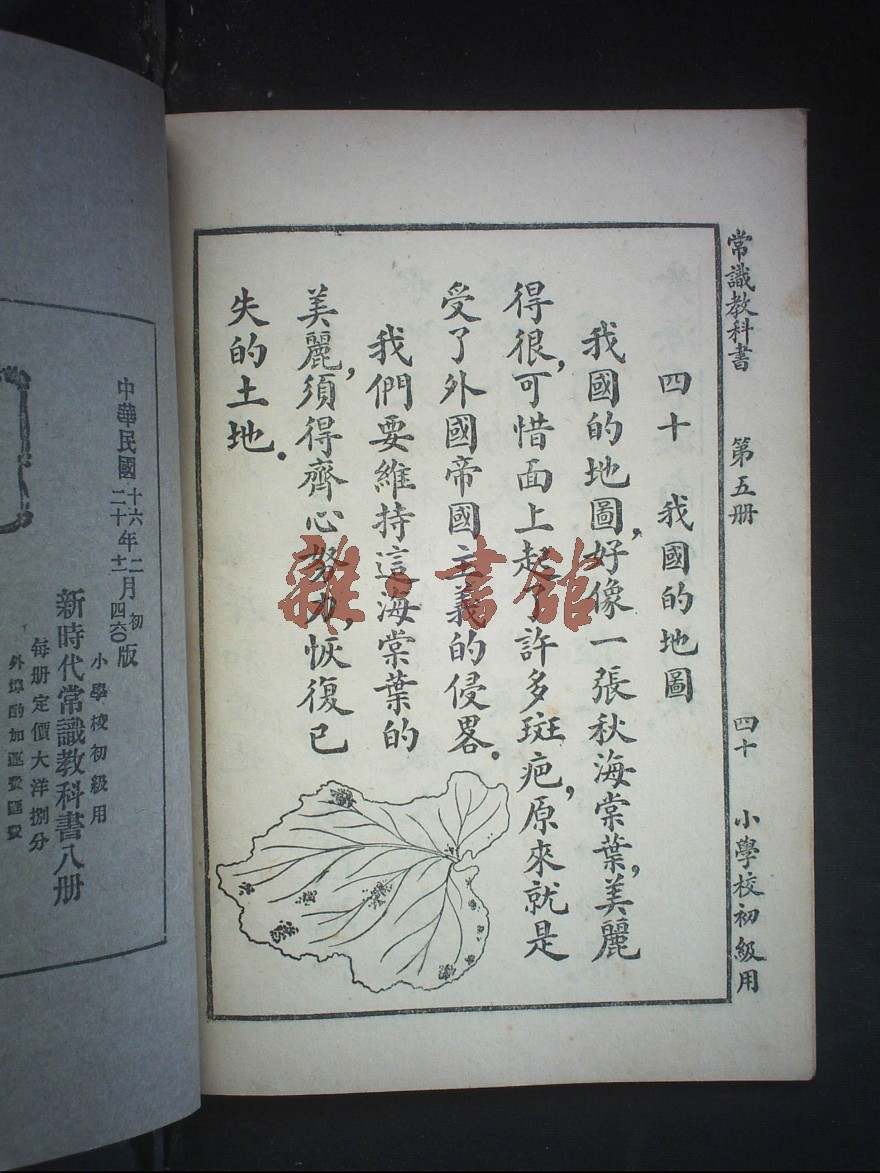 常識教科書 第五册 四十 小學校初級用
四十 我國的地圖
我國的地圖,好像一張秋海棠葉,美麗
得很,可惜面上起了許多斑疤,原來就是
受了外國帝國主義的侵畧。
我們要維持這海棠葉的
美麗,須得齊心努力,恢復已
失的土地。
雜·書館
中華民國十六年二月初版
二十年十二月四六〇版
小學校初級用
新時代常識教科書八册
每册定價大洋捌分
外埠酌加運費匯費